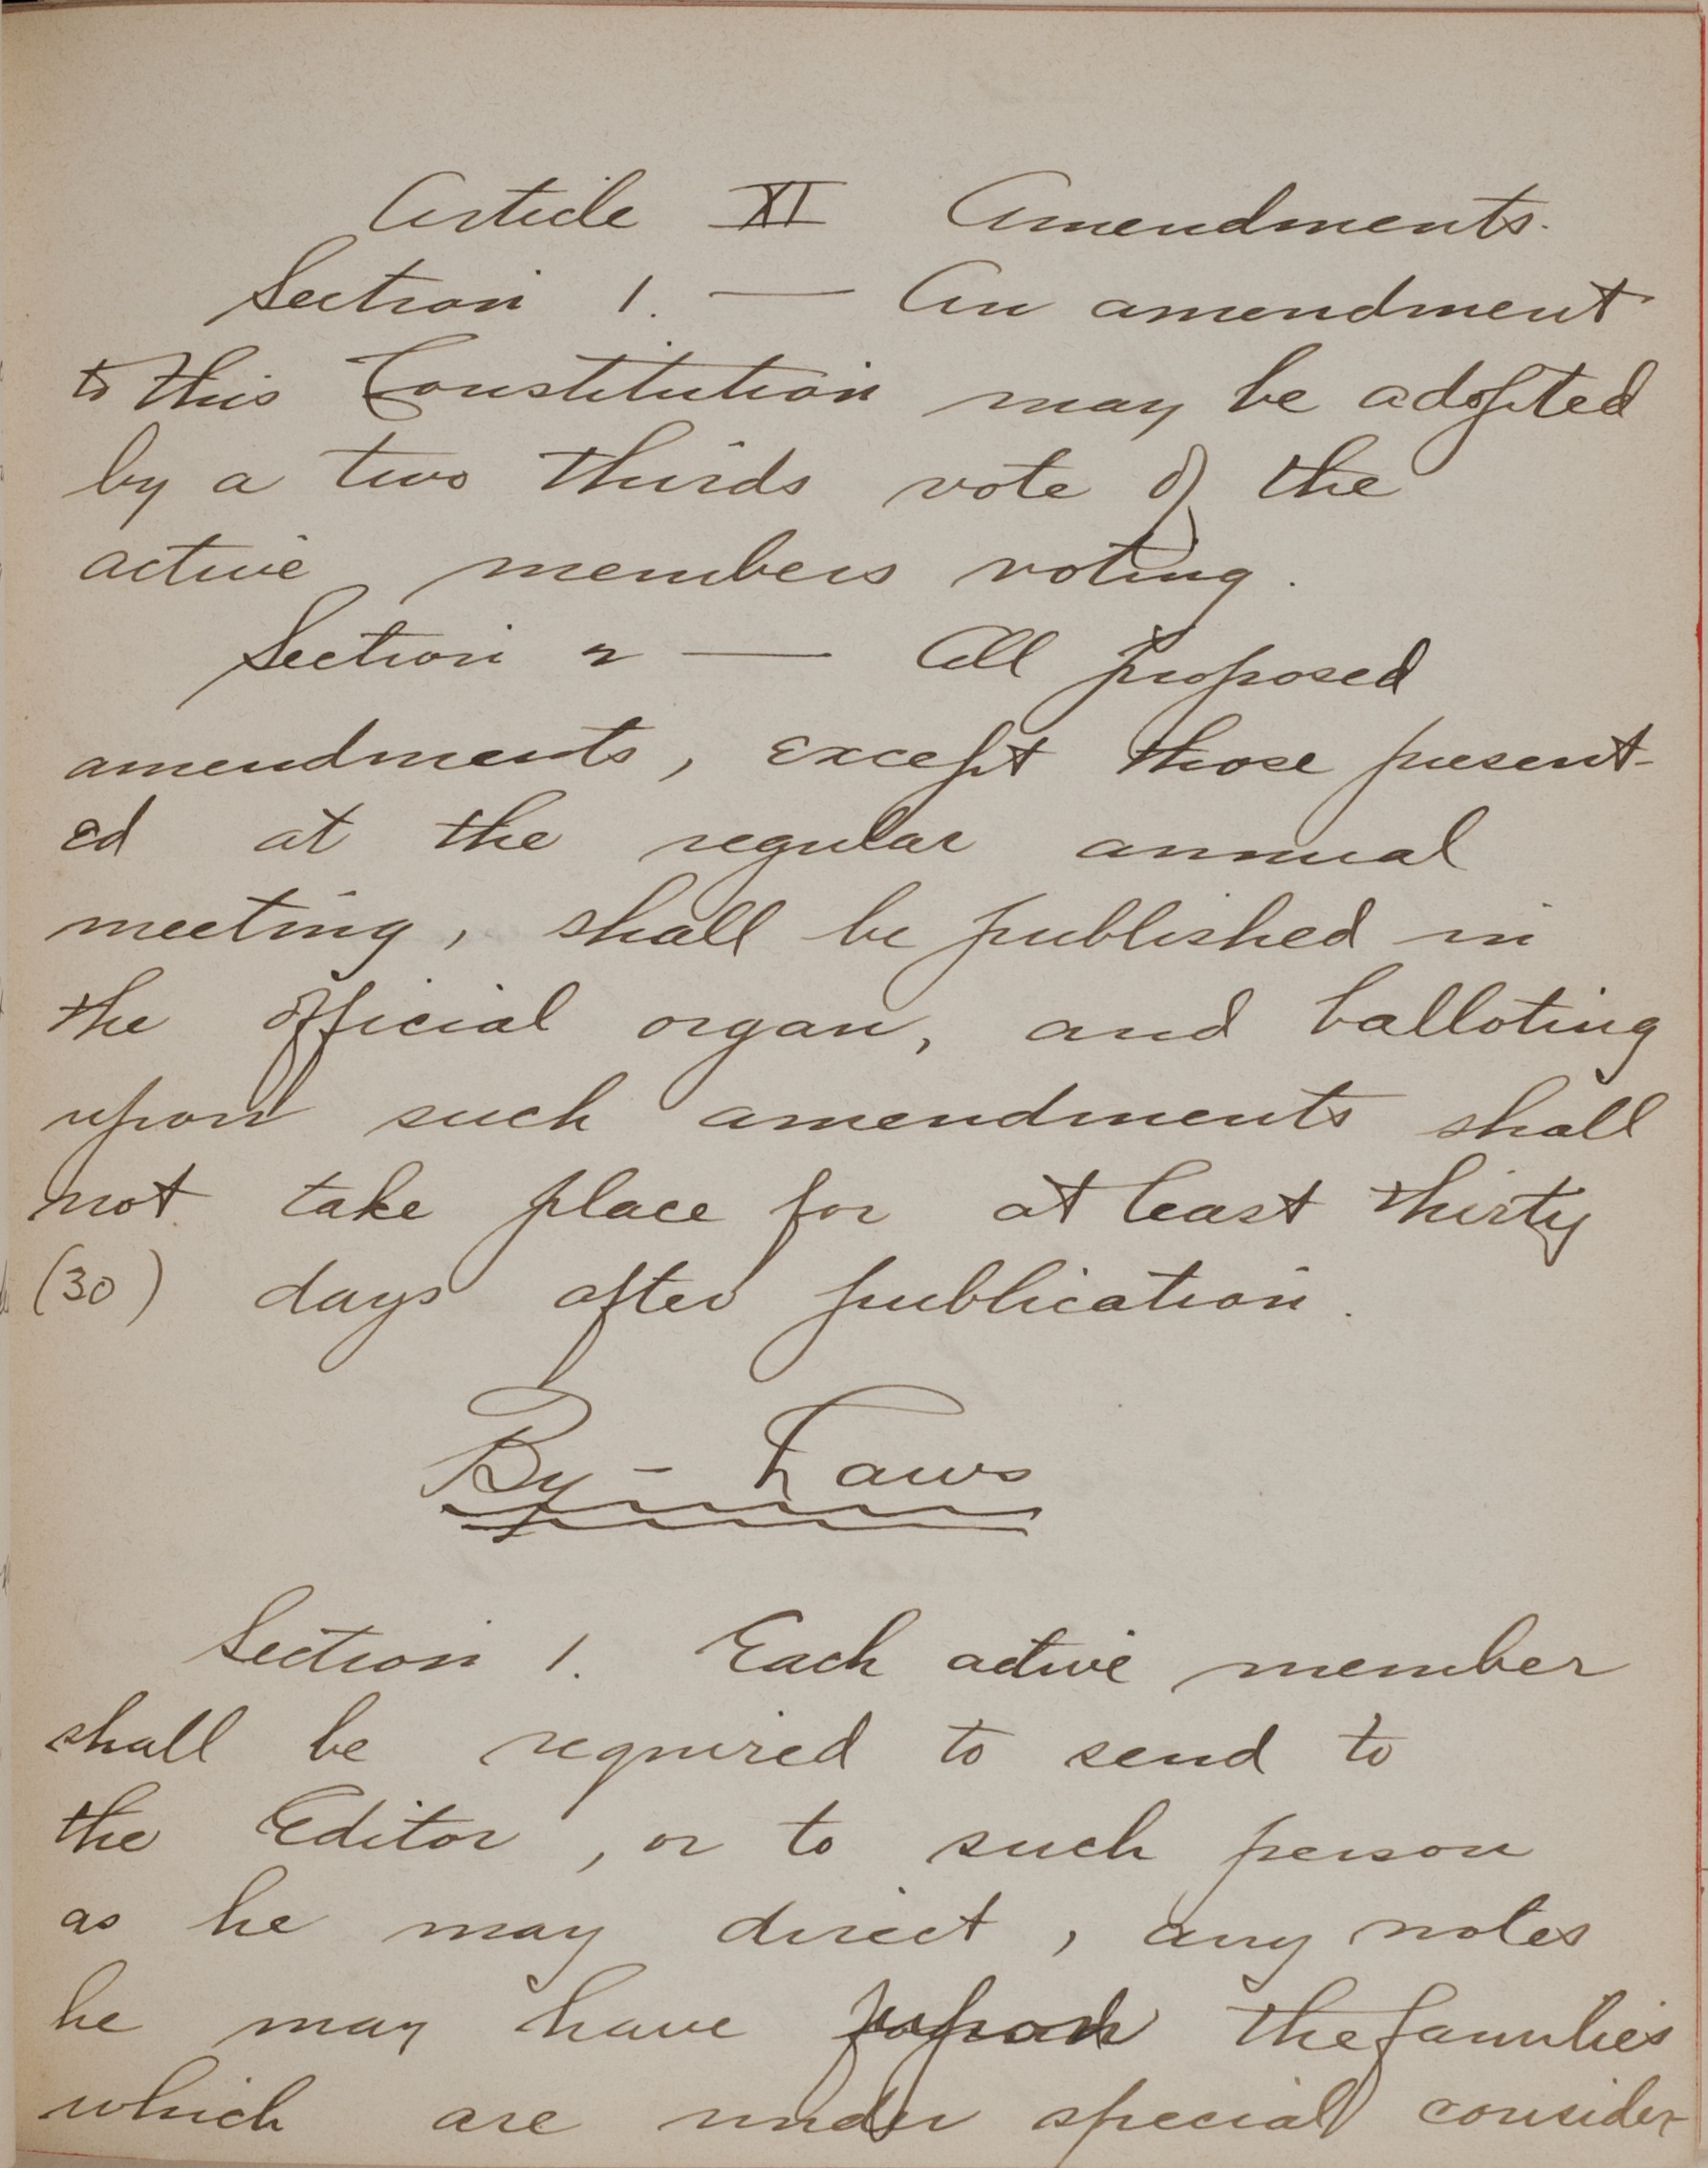 Article XI Amendments.
Section 1. — An amendment
to this Constitution may be adopted
by a two thirds vote of the
active members voting.
Section 2 — All proposed
amendments, except those present-
ed at the regular annual
meeting, shall be published in
the official organ, and balloting
upon such amendments shall
not take place for at least thirty
(30) days after publication.
By-Laws
Section 1. Each active member
shall be required to send to
the Editor, or to such person
as he may direct, any notes
he may have upon the families
which are under special consider-